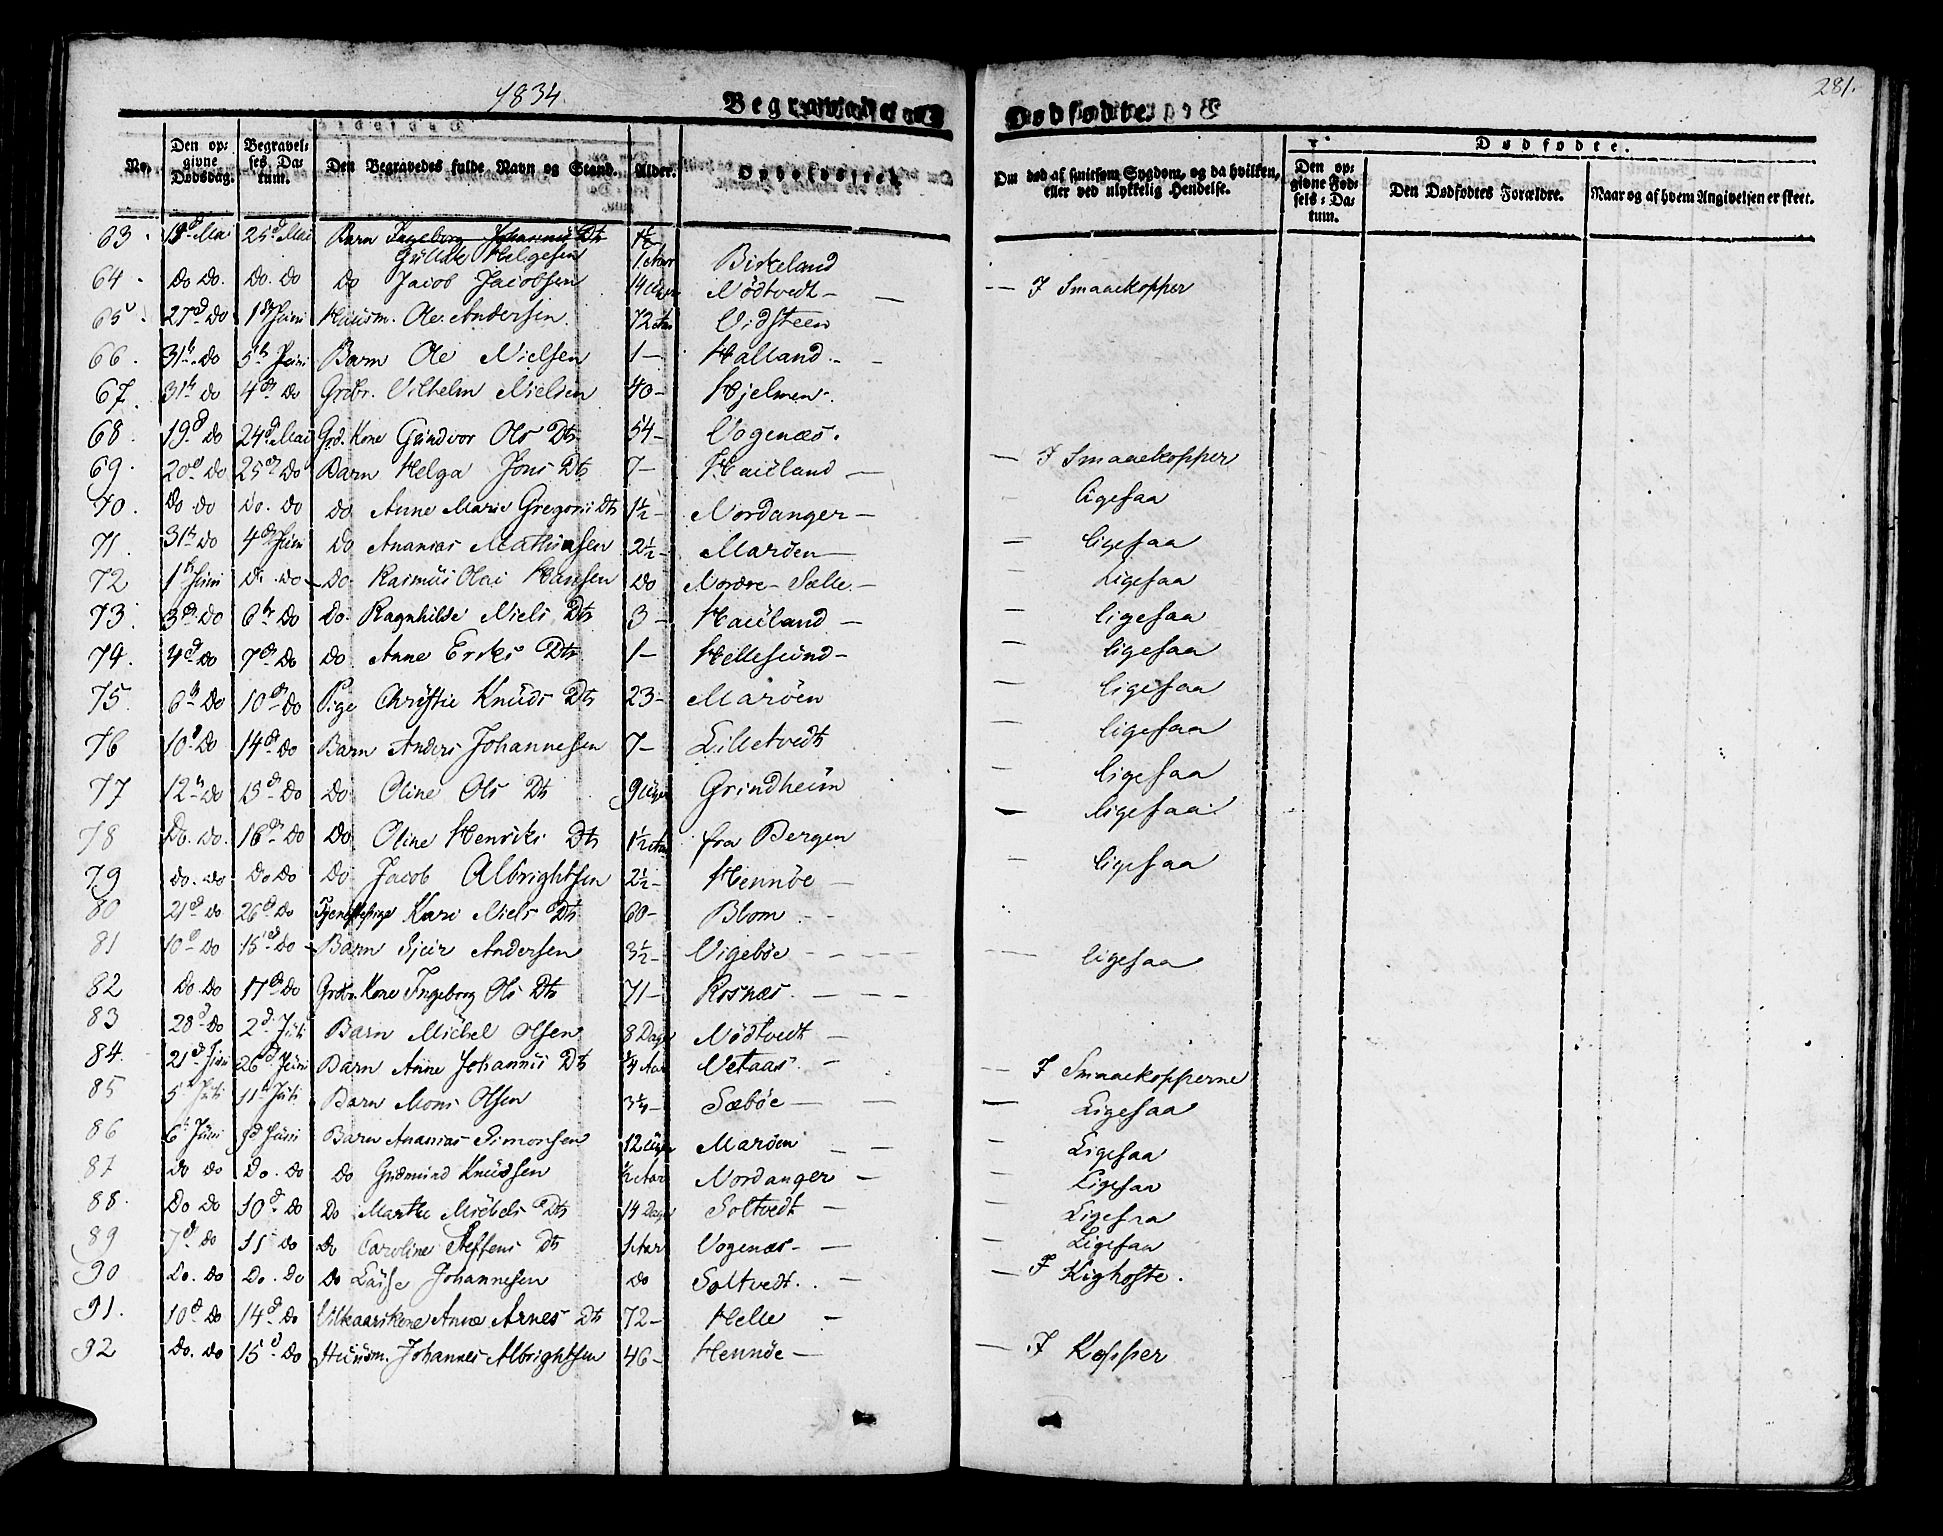 1834. Begravede og Dødfødte. 281.
No. Den opgivne Dødsdag. Begravelses Datum. Den Begravedes fulde Navn og Stand. Alder. Opholdssted. Om død af smitsom Sygdom, og da hvilken, eller ved ulykkelig Hendelse. Dødfødte.
Den opgivne Fødsels-Datum. Den Dødfødtes Forældre. Naar og af hvem Angivelsen er skeet.
63. 19d Mai 25d Mai Barn Ingeborg Johannis Dtr 1½
Gullik Helgesen 1 Aar Birkeland
64. Do Do. Do. Do Do Jacob Jacobsen 14 Uger Nödtvedt — — I Smaaekopper
65. 27d Do 1st Juni Huusm. Ole Andersen. 72 Aar Vidsteen
66. 31te Do 5te Juni Barn Ole Nielsen 1 — Halland. —
67. 31te Do 4de Do Grdbr. Vilhelm Nielsen 40 — Hjelmen.
68. 19d Do 24d Mai Grd. Kone Gundvor Ols Dtr 54 — Vogenæs.
69. 20d Do 25de Do Barn Helga Jons Dtr 7 — Hauland — — I Smaaekopper
70. Do Do Do. Do Do Anne Marie Gregorii Dtr 1½ — Nordanger — — ligesaa
71. 31te Do 4de Juni Do Ananias Mathiasen 2½ — Maröen — — ligesaa
72 1te Juni Do. Do — Do. Rasmus Olai Hansen Do Nordre-Sælle. — — Ligesaa
73. 3de Do 6te Do Do. Ragnhilde Niels Dtr 3 — Hauland — — ligesaa
74. 4d Do 7de Do Do Anne Eriks Dtr 1 — Hellesund — — ligesaa
75. 6te Do 10de Do Pige Christie Knuds Dtr 23 — Maröen — ligesaa
76 10d Do 14de Do Barn Anders Johannesen 7 — Lilletvedt — ligesaa
77 12te Do 15de Do Do Oline Ols Dtr 9 Uger Grindheim — ligesaa
78 Do. Do. 16de Do Do Oline Henriks Dtr 1½ Aar fra Bergen — ligesaa.
79 Do. Do Do Do Do Jacob Albrightsen 2½ — Hennöe — — ligesaa
80 21d Do 26d Do Tjenestepige Kari Niels Dtr 60 — Blom
81 10d Do 15de Do — Barn Sjur Andersen 3½ — Vigeböe — — ligesaa
82 Do. Do 17de Do Grdbr. Kone Ingeborg Ols Dtr 71 — Rosnæs. —
83 28d Do 2d Juli Barn Michel Olsen 8 Dage Nödtvedt —
84. 21d Juni 26d Juni Barn Anne Johannis Dtr ¼ Aar Vetaas. — — I Smaaekopperne
85 5te Juli 11te Juli Barn Mons Olsen 3¼ — Sæböe — — Ligesaa
86 6te Juni 9d Juni Barn Ananias Simonsen 12 Uger Maröen — — Ligesaa
87 Do Do Do. Do Do Gudmund Knudsen ½ Aar Nordanger — — Ligesaa
88. Do Do 10d Do Do Marthe Michels Dtr 14 Dage Soltvedt — — Ligesaa
89 7de Do 11 Do Do Caroline Steffens Dtr 1 Aar Vogenæs — — Ligesaa
90 Do. Do Do. Do Do Johannesen Do Soltvedt. — — I Kighoste.
91. 10d Do 14d Do Vilkaarskone Anne Arnes Dtr 72 — Helle —
92 Do. Do 15d Do Huusm. Johannes Albrightsen 46 — Hennöe — — I Kopper